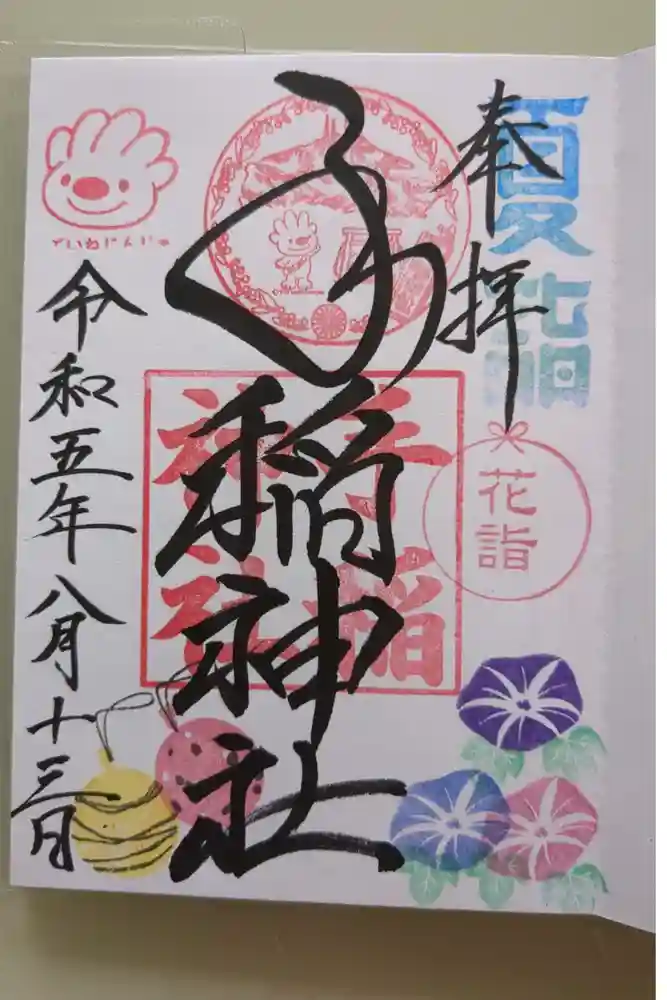 夏詣
奉拝
花詣
手稲神社
手稲神社
ていねじんじゃ
令和五年八月十三日